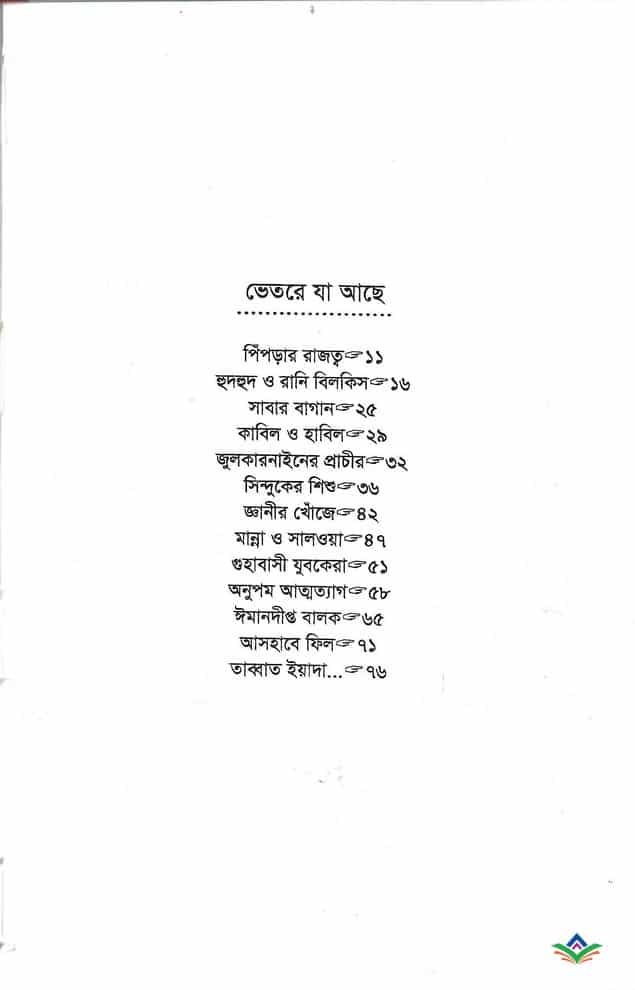 ভেতরে যা আছে
পিঁপড়ার রাজত্ব☞১১
হুদহুদ ও রানি বিলকিস☞১৬
সাবার বাগান☞২৫
কাবিল ও হাবিল☞২৯
জুলকারনাইনের প্রাচীর☞৩২
সিন্দুকের শিশু☞৩৬
জ্ঞানীর খোঁজে☞৪২
মান্না ও সালওয়া☞৪৭
গুহাবাসী যুবকেরা☞৫১
অনুপম আত্মত্যাগ☞৫৮
ঈমানদীপ্ত বালক☞৬৫
আসহাবে ফিল☞৭১
তাব্বাত ইয়াদা...☞৭৬